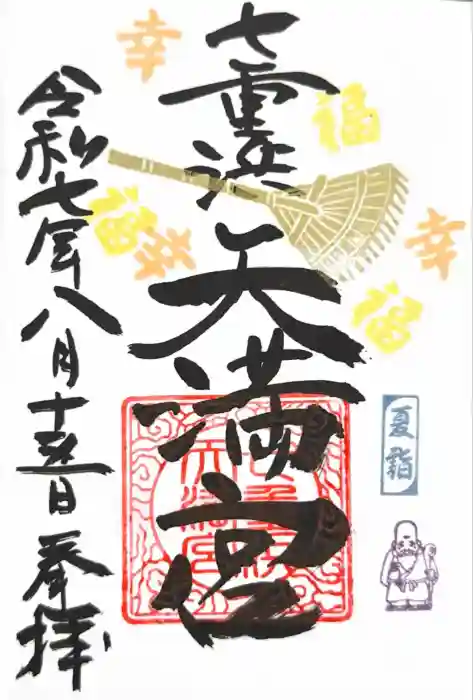 七重浜天満宮
令和七年八月十五日奉拝
幸
福
福
幸
幸
福
夏詣
七重浜天満宮